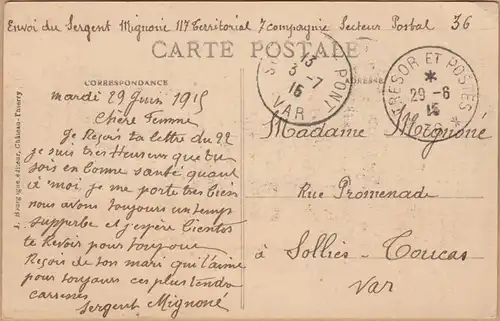 Envoi du Sergent Mignoné 117 Territorial 7 compagnie Secteur Postal 36
CARTE POSTALE
CORRESPONDANCE
ADRESSE
13
3 -7
15
PONT
VAR
TRESOR ET POSTES
*
29-6
15
*
J. Bourgogne, éditeur, Château-Thierry
mardi 29 Juin 1915
Chère Femme
Je Reçois ta lettre du 22
je suis très Heureux que tu
sois en bonne santé quant
à moi je me porte très bien
nous avons toujours un temps
supperbe et j'espère bientos
te Revoir pour toujour
Reçois de ton mari qui t'aime
pour toujours ces plus tendre
caresses
Sergent Mignoné
Madame Mignoné
Rue Promenade
à Solliès-Toucas
Var